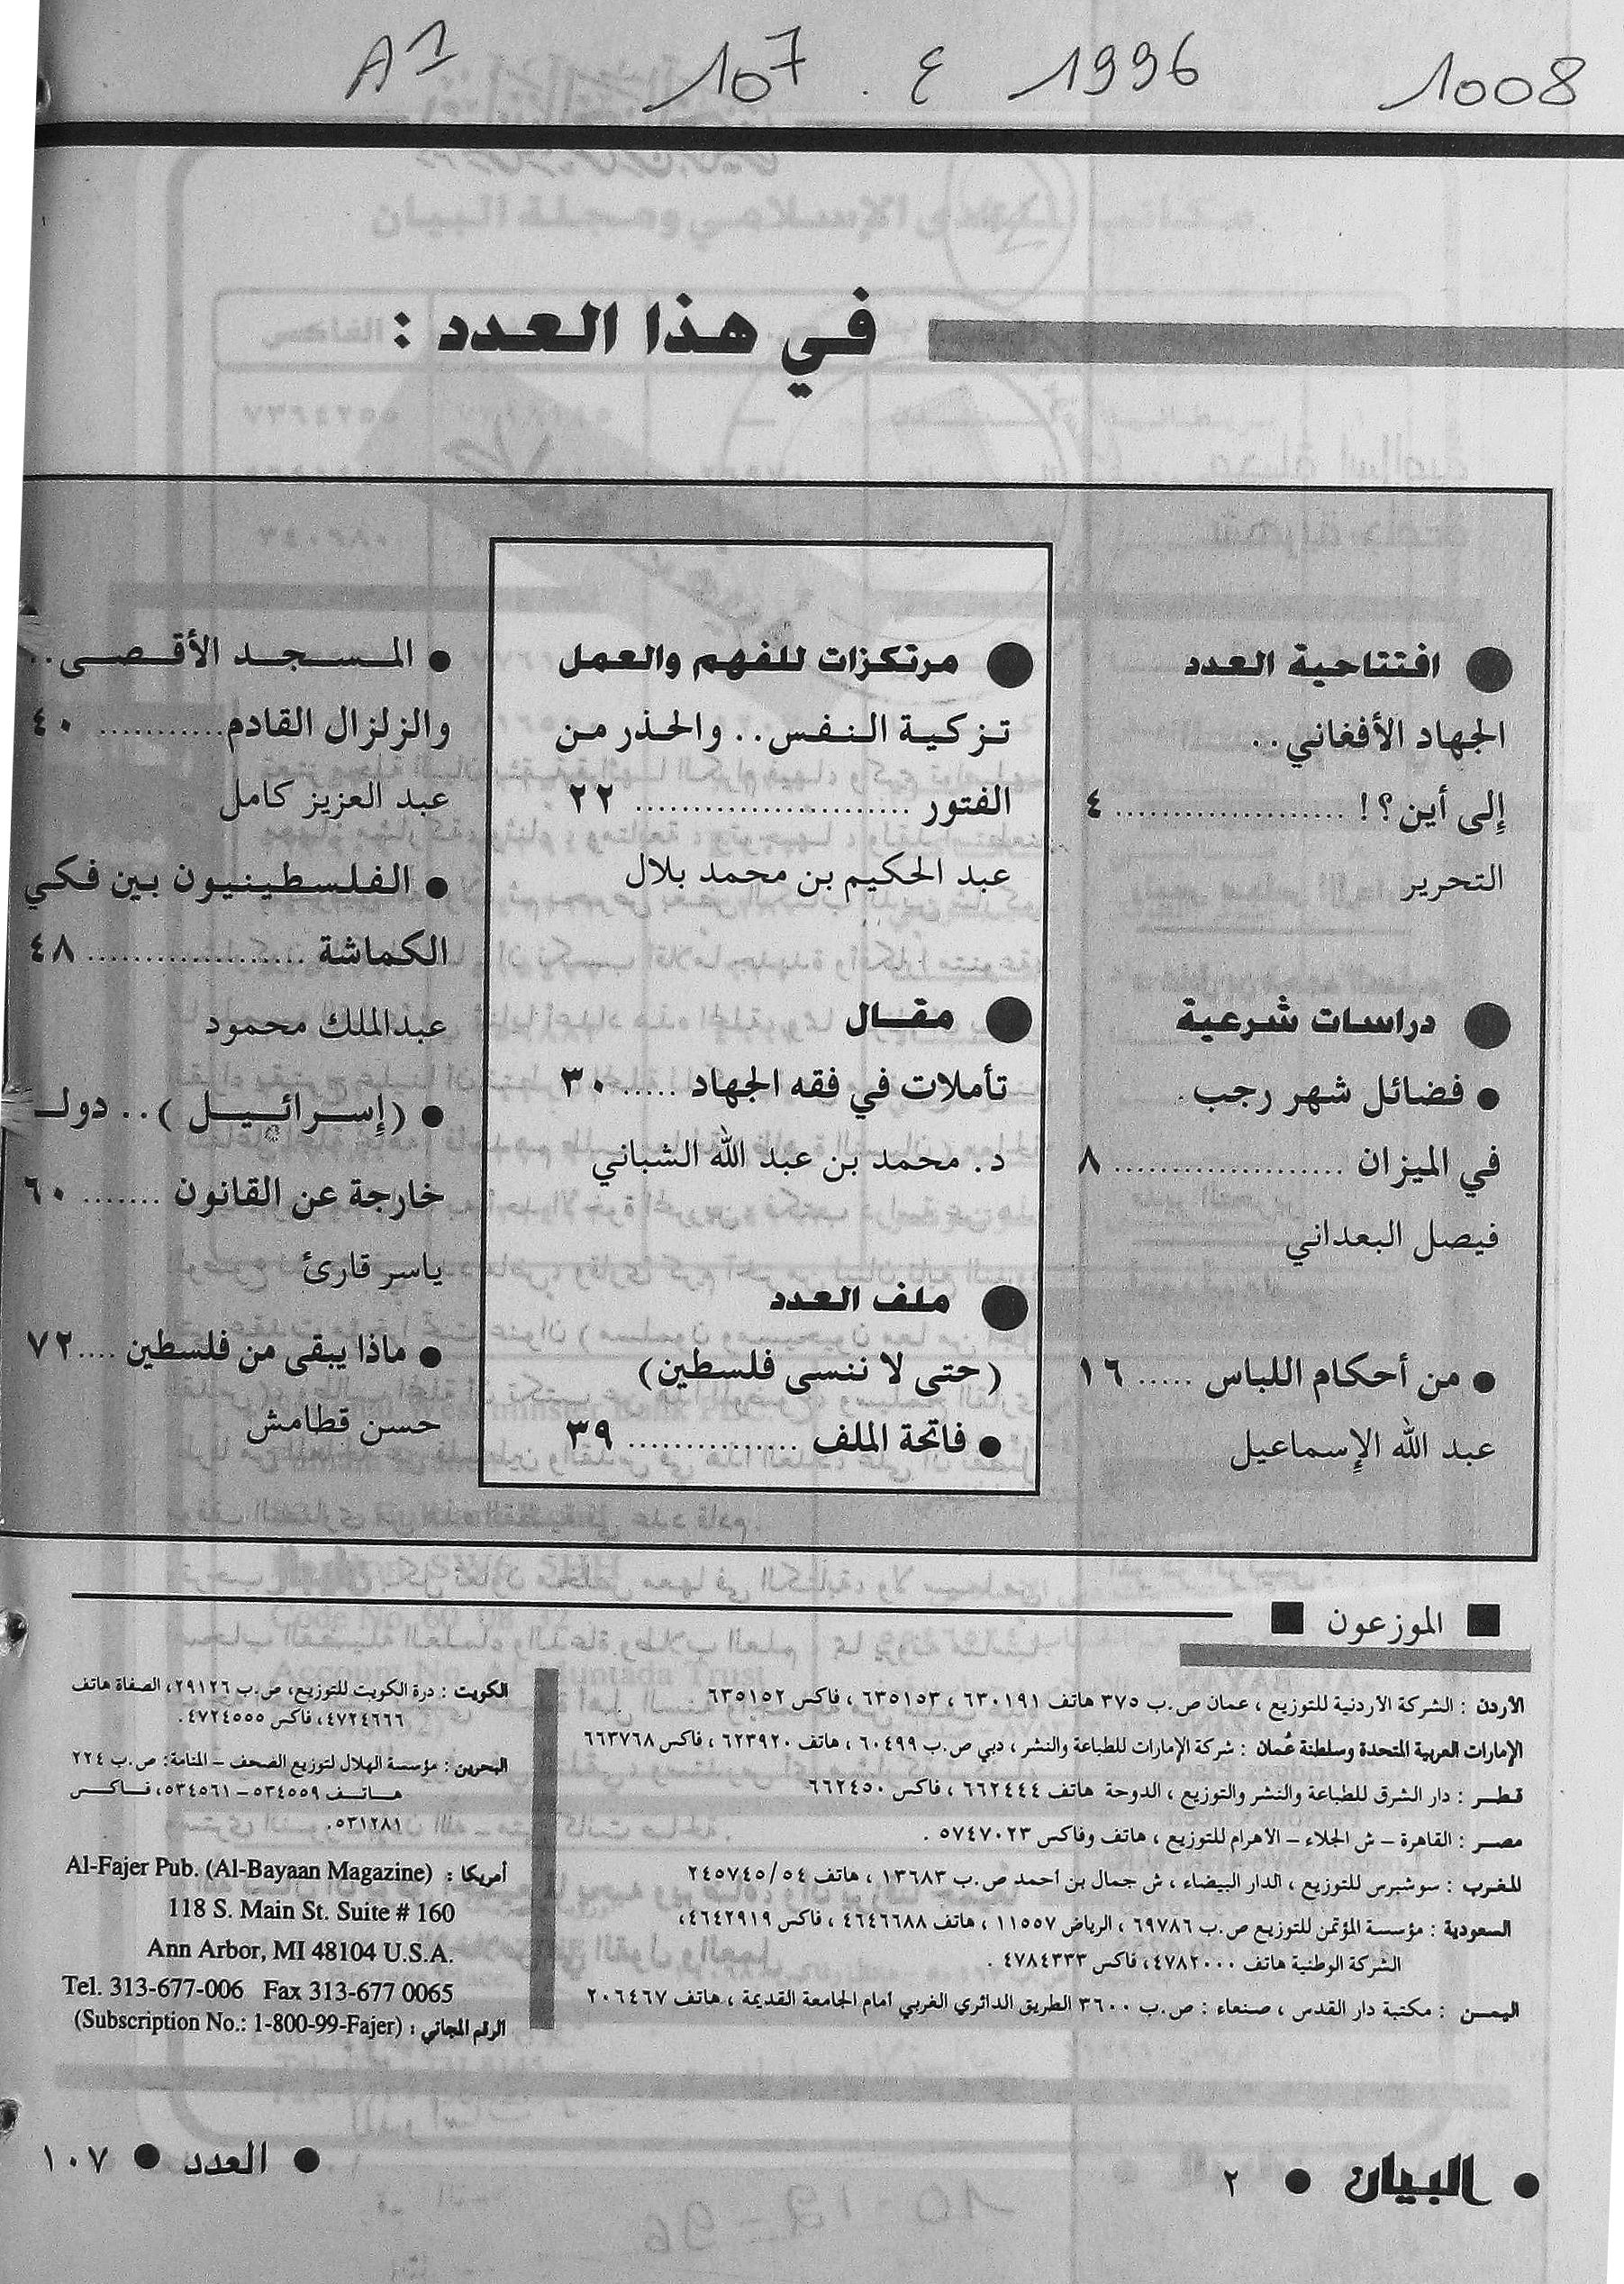 A1 107 ع 1996 1008
في هذا العدد :
● افتتاحية العدد
الجهاد الأفغاني..
إلى أين؟! .................... ٤
التحرير
● دراسات شرعية
● فضائل شهر رجب
في الميزان .................... ٨
فيصل البعداني
● من أحكام اللباس ..... ١٦
عبد الله الإسماعيل
● مرتكزات للفهم والعمل
تزكية النفس.. والحذر من
الفتور ........................ ٢٢
عبد الحكيم بن محمد بلال
● مقال
تأملات في فقه الجهاد ..... ٣٠
د. محمد بن عبد الله الشباني
● ملف العدد
(حتى لا ننسى فلسطين)
● فاتحة الملف ............... ٣٩
● المسجد الأقصى..
والزلزال القادم........... ٤٠
عبد العزيز كامل
● الفلسطينيون بين فكي
الكماشة ................... ٤٨
عبدالملك محمود
● (إسرائيل).. دولـ
خارجة عن القانون ....... ٦٠
ياسر قارئ
● ماذا يبقى من فلسطين .... ٧٢
حسن قطامش
■ الموزعون ■
الأردن : الشركة الأردنية للتوزيع ، عمان ص.ب ٣٧٥ هاتف ٦٣٠١٩١ ، ٦٣٥١٥٣ ، فاكس ٦٣٥١٥٢
الإمارات العربية المتحدة وسلطنة عُمان : شركة الإمارات للطباعة والنشر ، دبي ص.ب ٦٠٤٩٩ ، هاتف ٦٢٣٩٢٠ ، فاكس ٦٦٣٧٦٨
قطر : دار الشرق للطباعة والنشر والتوزيع ، الدوحة هاتف ٦٦٢٤٤٤ ، فاكس ٦٦٢٤٥٠
مصر : القاهرة – ش الجلاء – الأهرام للتوزيع ، هاتف وفاكس ٥٧٤٧٠٢٣ .
المغرب : سوشبرس للتوزيع ، الدار البيضاء ، ش جمال بن أحمد ص.ب ١٣٦٨٣ ، هاتف ٢٤٥٧٤٥/٥٤
السعودية : مؤسسة المؤتمن للتوزيع ص.ب ٦٩٧٨٦ ، الرياض ١١٥٥٧ ، هاتف ٤٦٤٦٦٨٨ ، فاكس ٤٦٤٢٩١٩،
الشركة الوطنية هاتف ٤٧٨٢٠٠٠، فاكس ٤٧٨٤٣٣٣ .
اليمن : مكتبة دار القدس ، صنعاء : ص.ب ٣٦٠٠ الطريق الدائري الغربي أمام الجامعة القديمة ، هاتف ٢٠٦٤٦٧
الكويت : درة الكويت للتوزيع، ص.ب ٢٩١٢٦، الصفاة هاتف
٤٧٢٤٦٦٦، فاكس ٤٧٢٤٥٥٥ .
البحرين : مؤسسة الهلال لتوزيع الصحف – المنامة: ص.ب ٢٢٤
هاتف ٥٣٤٥٥٩ – ٥٣٤٥٦١، فاكس
٥٣١٢٨١.
أمريكا : Al-Fajer Pub. (Al-Bayaan Magazine)
118 S. Main St. Suite # 160
Ann Arbor, MI 48104 U.S.A.
Tel. 313-677-006 Fax 313-677 0065
الرقم المجاني : (Subscription No.: 1-800-99-Fajer)
● البيان ● ٢
● العدد ● ١٠٧